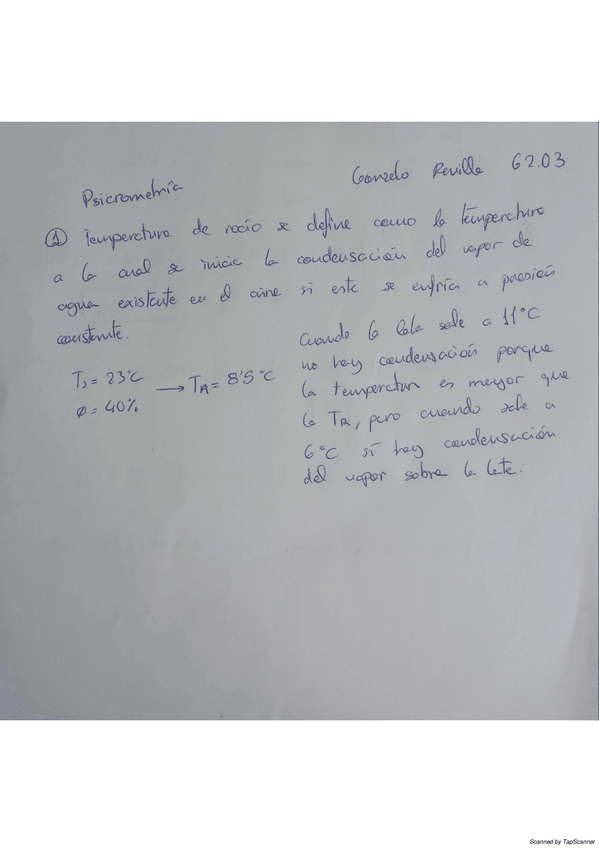 Gonzalo Revilla G2.03
Psicrometría
① Temperatura de rocío se define como la temperatura
a la cual se inicia la condensación del vapor de
agua existente en el aire si este se enfría a presión
constante.
Ts = 23°C
ø = 40%
→ TR = 8'5°C
Cuando la lata sale a 11°C
no hay condensación porque
la temperatura es mayor que
la TR, pero cuando sale a
6°C sí hay condensación
del vapor sobre la lata.
Scanned by TapScanner